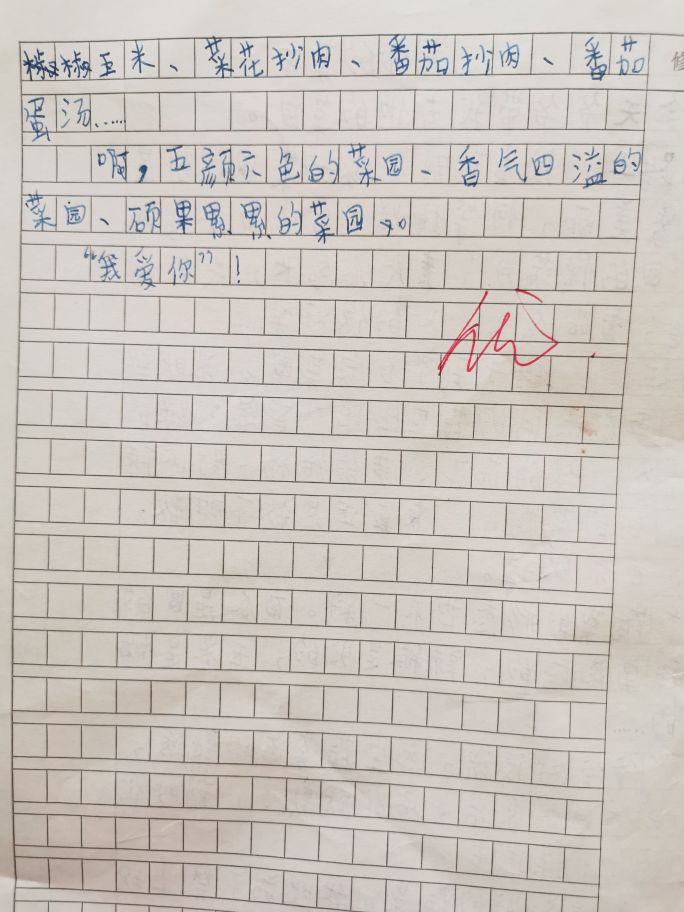 椒椒玉米、菜花抄肉、番茄抄肉、番茄
蛋汤……
啊，五颜六色的菜园、香气四溢的
菜园、硕果累累的菜园
“我爱你”！
优